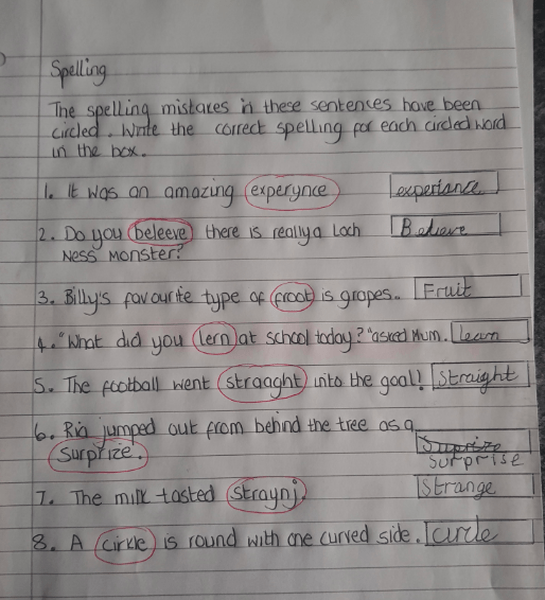 Spelling
The spelling mistakes in these sentences have been
circled. Write the correct spelling for each circled word
in the box.
1. It was an amazing experynce experiance
2. Do you beleeve there is really a Loch Believe
Ness Monster?
3. Billy's favourite type of froot is grapes. Fruit
4. "What did you lern at school today?" asked Mum. learn
5. The football went straaght into the goal! Straight
6. Ria jumped out from behind the tree as a
surprize. Suprize
surprise
7. The milk tasted straynj. Strange
8. A cirkle is round with one curved side. circle